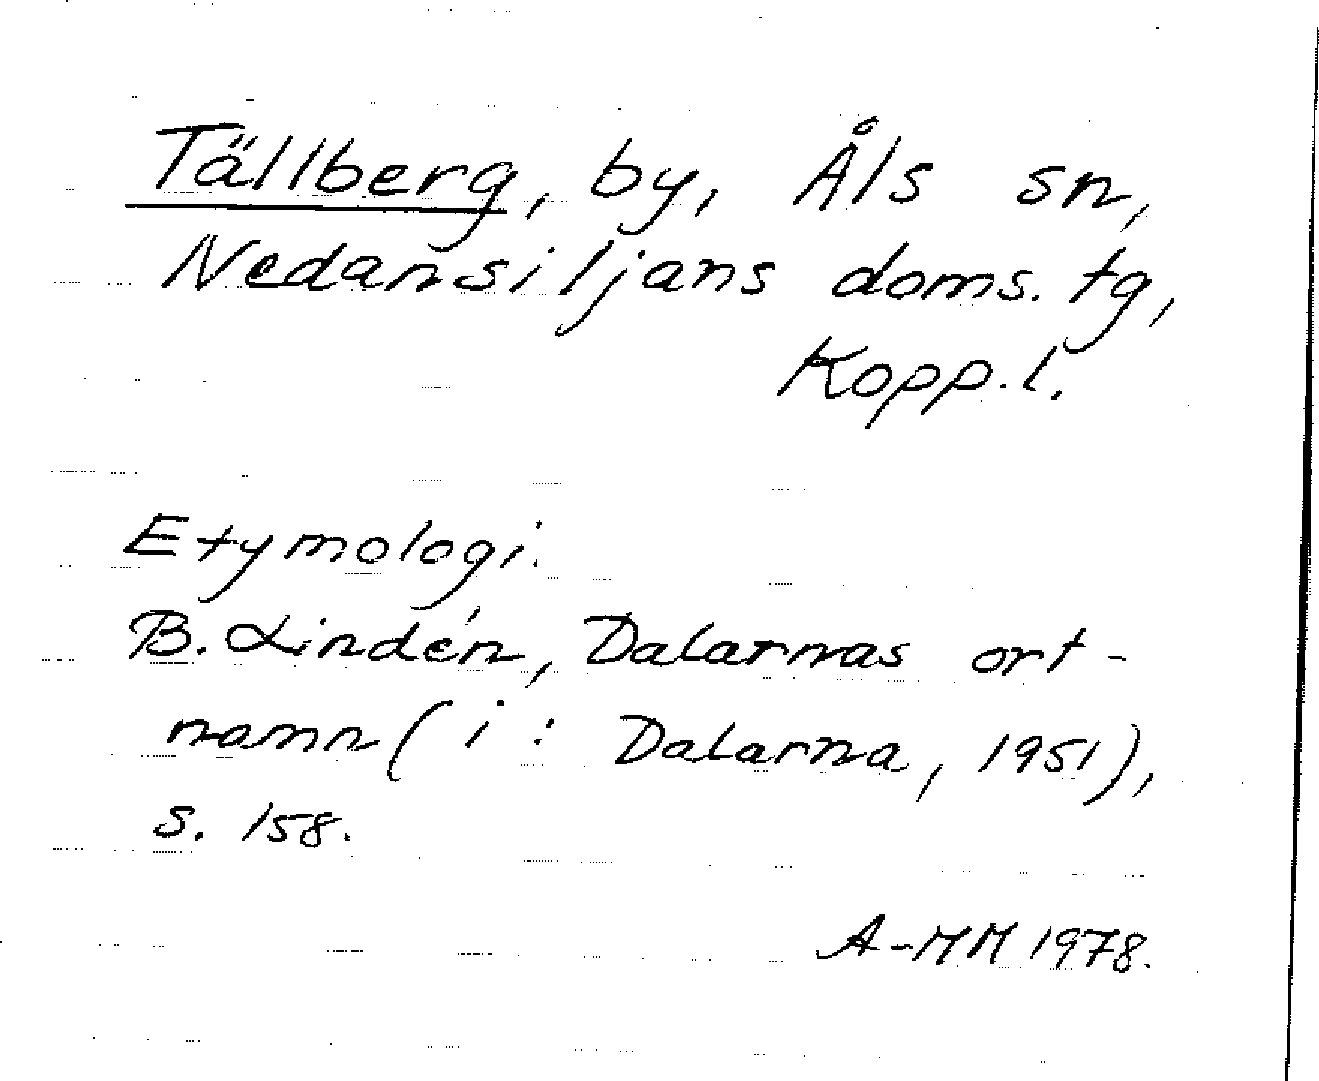 Tällberg, by, Åls sn,
Nedansiljans doms. tg,
Kopp.l.
Etymologi.
B. Lindén, Dalarnas ort-
namn (i: Dalarna, 1951),
s. 158.
A-MM 1978.